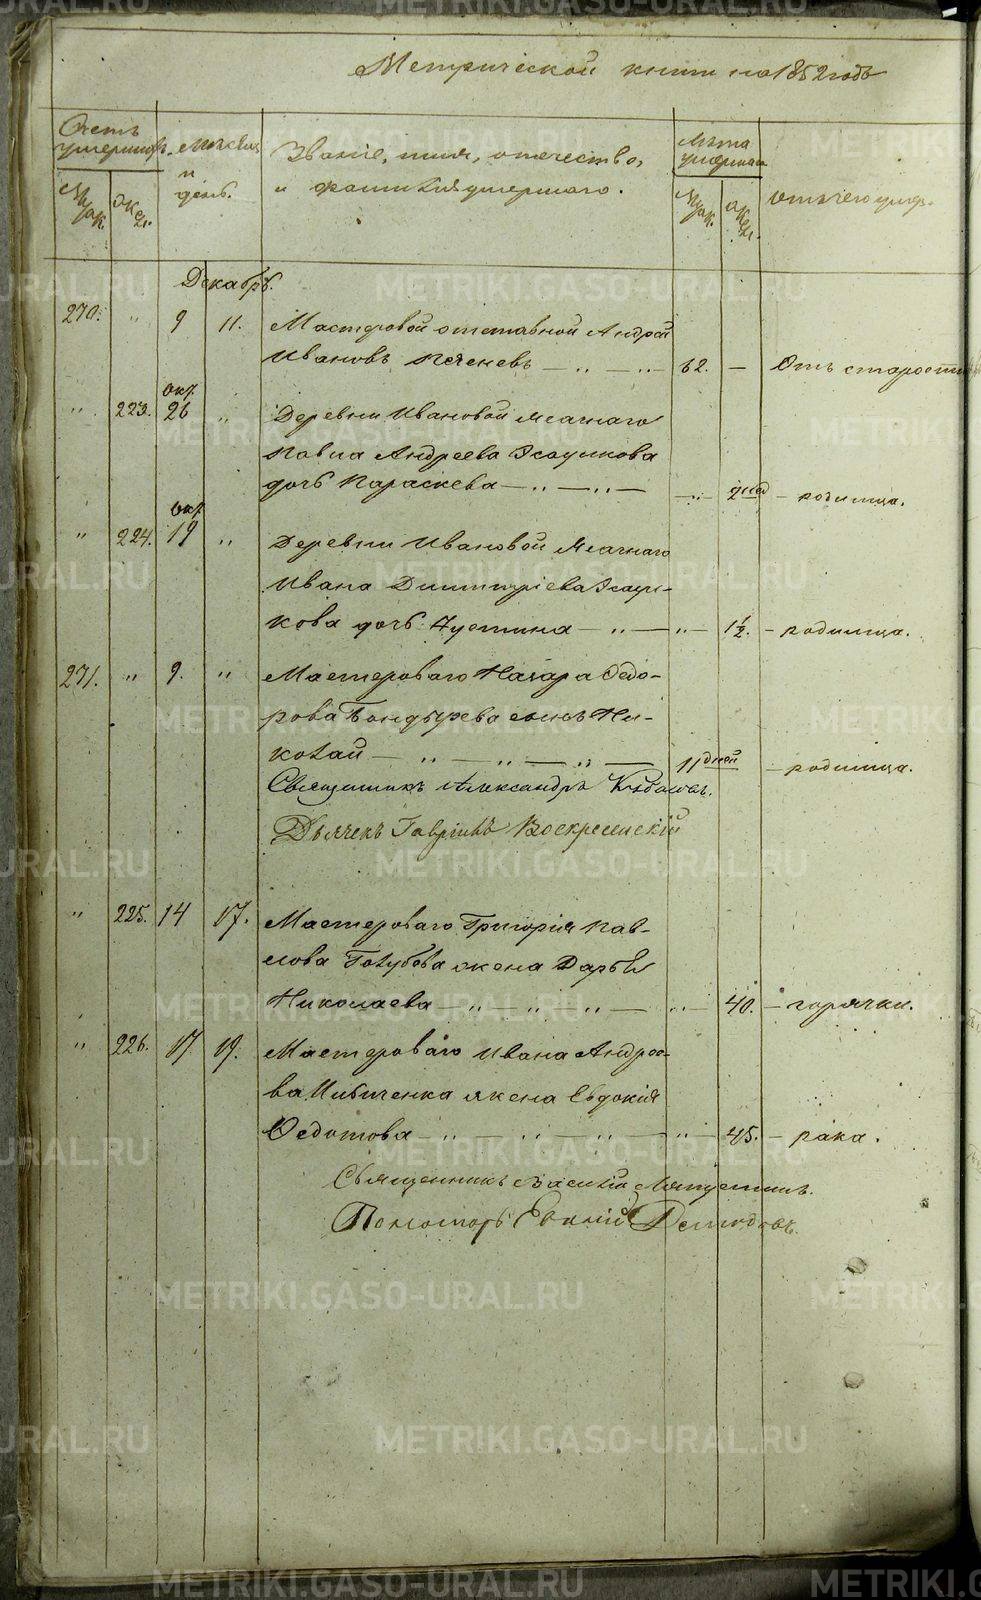 Метрической книги на 1852 годъ
Счетъ умершихъ. Мѣсяцъ и день. Званіе, имя, отечество, и фамилія умершаго. Лѣта умершаго Отъ чего умер.
Муж. Жен. Муж. Жен.
Декабрь.
270. " 9 11. Мастеровой отставной Андрей
Ивановъ 62. — Отъ старости
окт.
" 223. 26 " Деревни Ивановой
Павла Андреева
дочь Параскева — " — " — — " — дней — родимца.
окт.
" 224. 19 " Деревни Ивановой
Ивана Димитріева
кова дочь Устина — " — " — 1½. — родимца.
271. " 9. " Мастероваго Назара Ѳедо-
рова сынъ Ни-
колай — " — " — " — 11 дней — родимца.
Священникъ Александръ
Дьячекъ Гавріилъ Воскресенскій
" 225. 14 17. Мастероваго Григорія Пав-
лова Голубова жена Дарья
Николаева " — " — " — " — 40. — горячки.
" 226. 17 19. Мастероваго Ивана Андрее-
ва жена Евдокія
Ѳедотова — " — " — " — " — 45. — рака.
Священникъ Василій
Пономарь Демидовъ.
METRIKI.GASO-URAL.RU